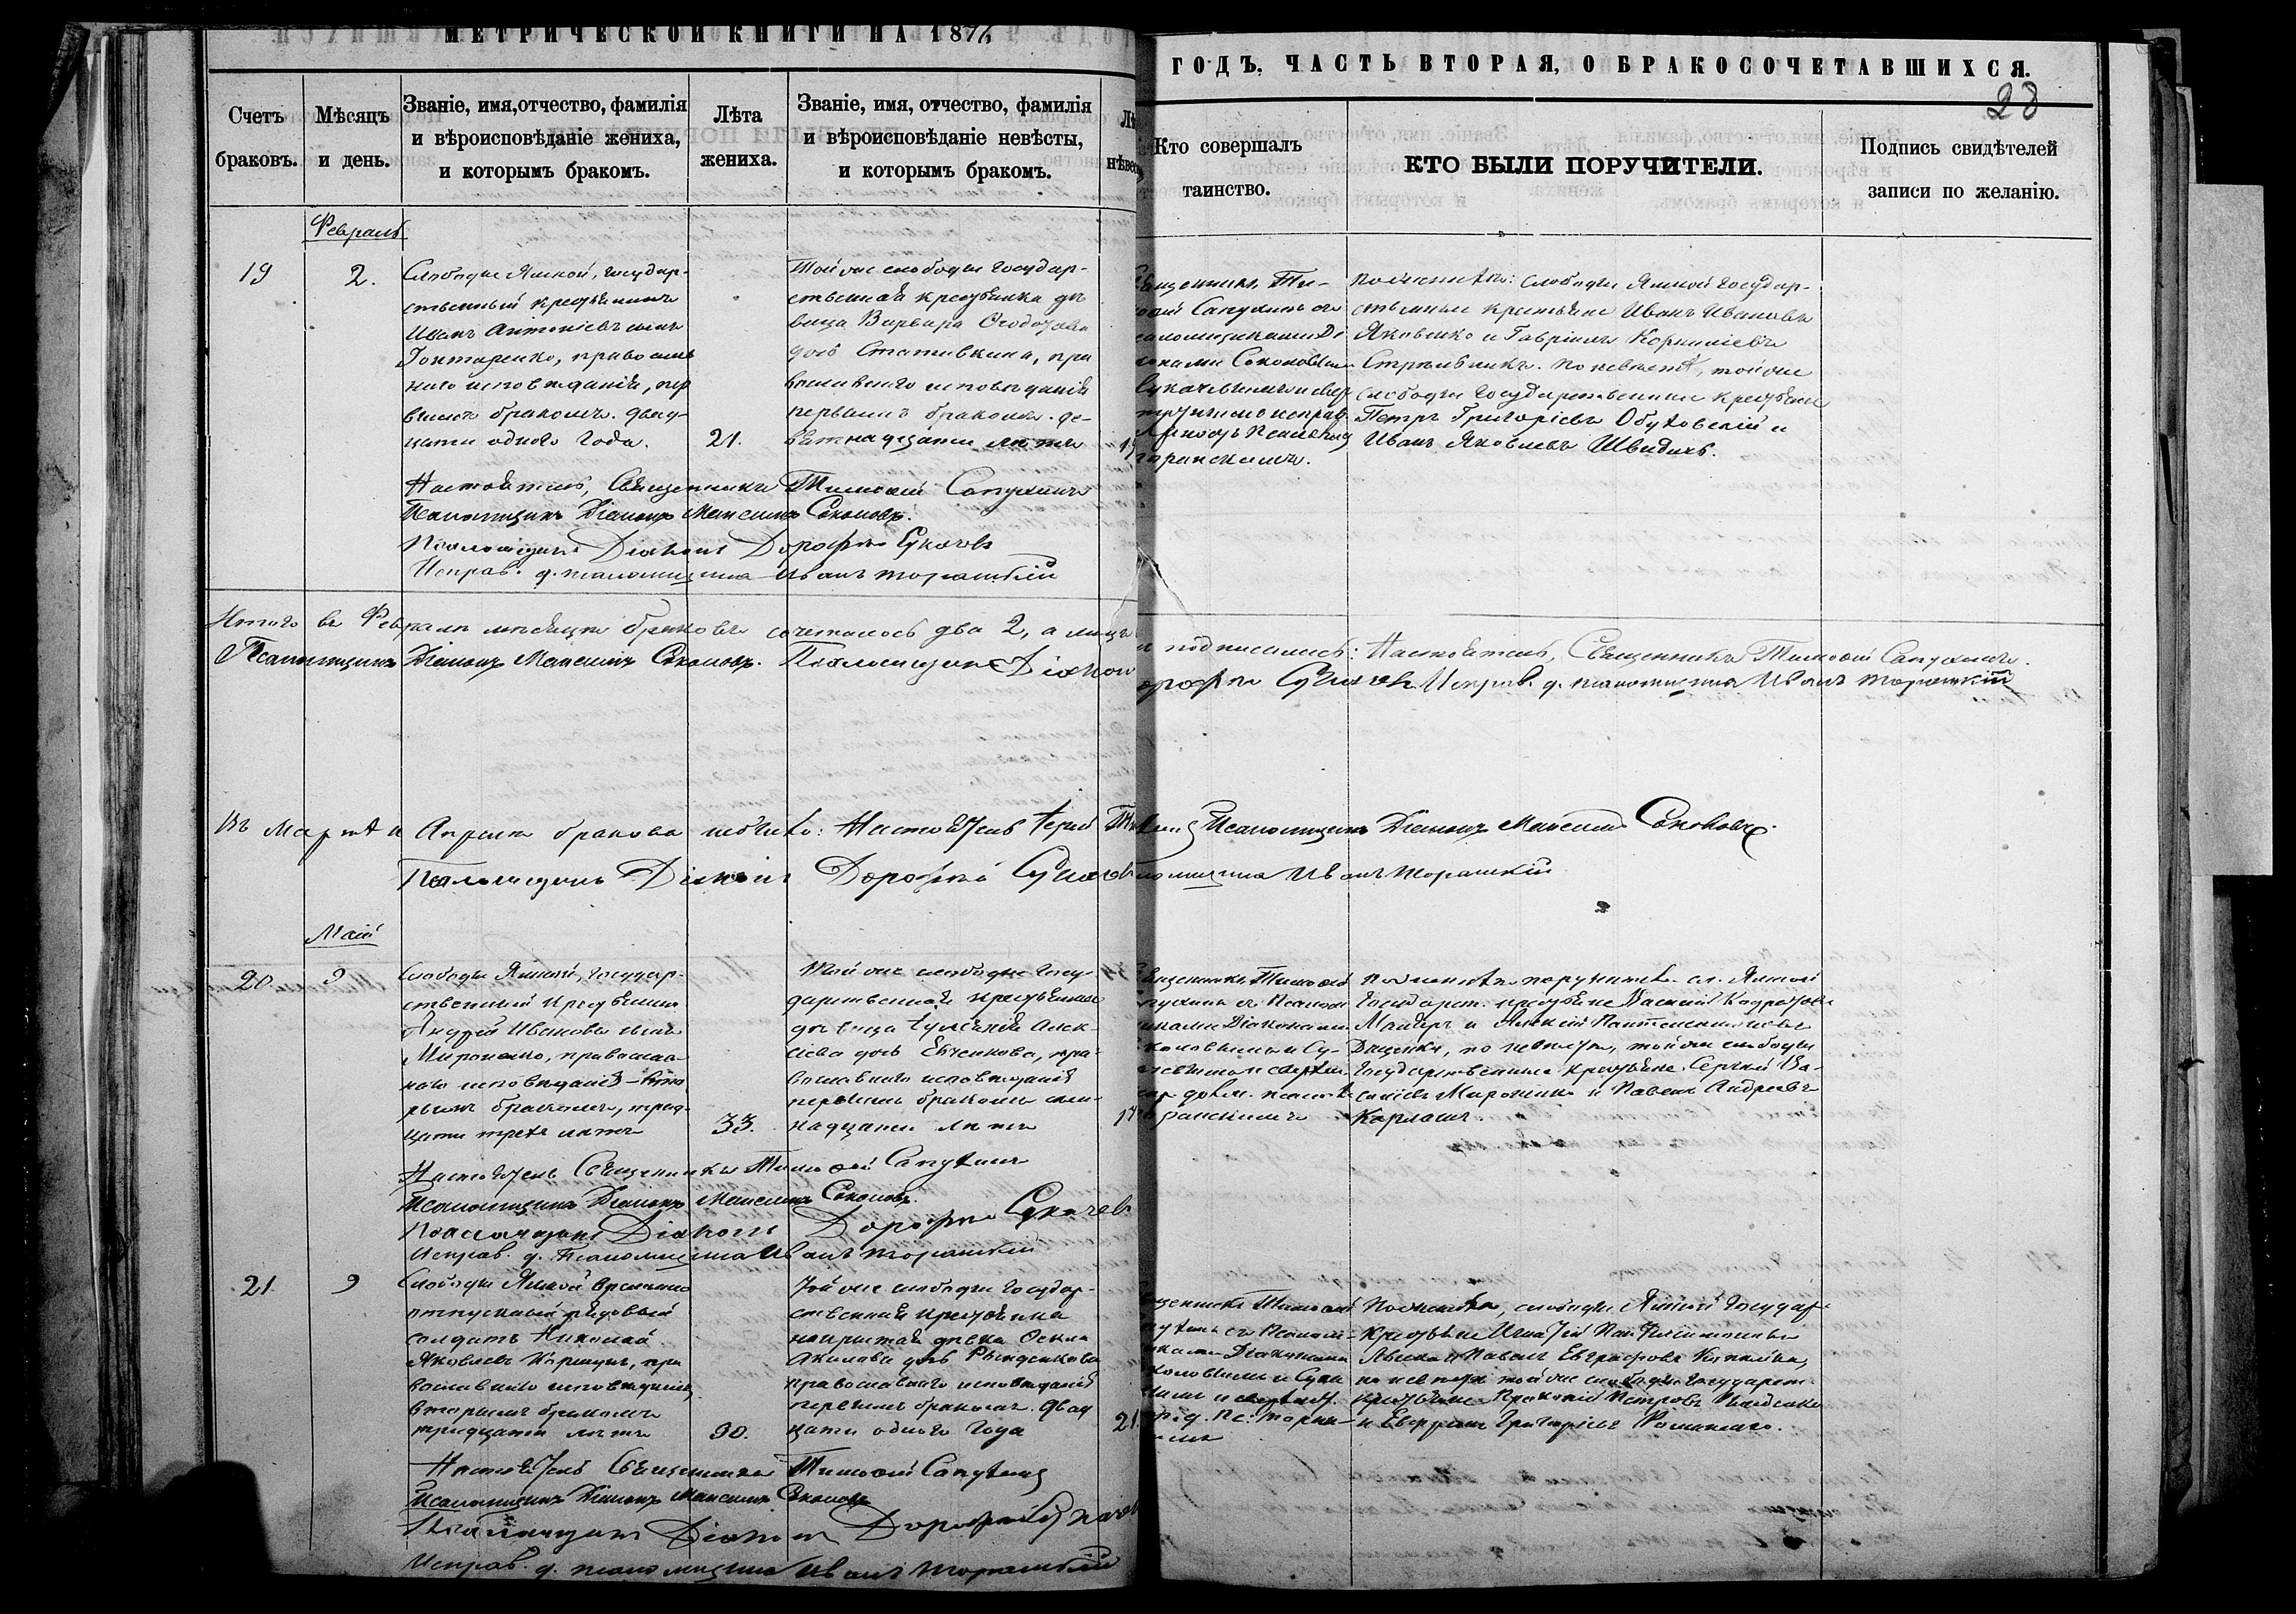 МЕТРИЧЕСКОЙ КНИГИ НА 1876
ГОДЪ, ЧАСТЬ ВТОРАЯ, О БРАКОСОЧЕТАВШИХСЯ.
28
Счетъ
браковъ.
Мѣсяцъ
и день.
Званіе, имя, отчество, фамилія
и вѣроисповѣданіе жениха,
и которымъ бракомъ.
Лѣта
жениха.
Званіе, имя, отчество, фамилія
и вѣроисповѣданіе невѣсты,
и которымъ бракомъ.
Кто совершалъ
таинство.
КТО БЫЛИ ПОРУЧИТЕЛИ.
Подпись свидѣтелей
записи по желанію.
Февраль
19
2.
Слободы Ямной, государ-
ственный крестьянинъ
Иванъ Антоніевъ сынъ
Гонтаренко, православ
наго исповѣданія, пер
вымъ бракомъ. двад-
цати одного года.
21.
Той же слободы государ-
ственная крестьянка дѣ
вица Варвара Ѳеодотова
дочь Стативкина, пра
вославнаго исповѣданія
первымъ бракомъ. де-
вятнадцати лѣтъ
19
Священникъ Ти-
моѳей Сапухинъ съ
псаломщиками Ді
аконами Соколовымъ
Сукачевымъ и свер
По женихѣ: слободы Ямной государ-
ственные крестьяне Иванъ Ивановъ
Яковенко и Гавріилъ Корниліевъ
Стрѣльникъ. По невѣстѣ, той же
слободы государственные крестьяне
Петръ Григорьевъ Обуховскій и
Иванъ Яковлевъ Швидкъ.
Настоятель, Священникъ Тимоѳей Сапухинъ
Псаломщикъ Діаконъ Максимъ Соколовъ.
Псаломщикъ Діаконъ Дороѳей Сукачевъ
Исправ. д. псаломщика Иванъ Торанскій
Итого въ Февралѣ мѣсяцѣ браковъ сочеталось два 2, а
и подписались: Настоятель, Священникъ Тимоѳей Сапухинъ.
Псаломщикъ Діаконъ Максимъ Соколовъ. Псаломщикъ Діаконъ
Дороѳей Сукачевъ Исправ. д. псаломщика Иванъ Торанскій
Въ Мартѣ и Апрѣлѣ браковъ небыло: Настоятель Іерей
Псаломщикъ Діаконъ Максимъ Соколовъ.
Псаломщикъ Діаконъ Дороѳей Сукачевъ
псаломщика Иванъ Торанскій
Май
20
9
Слободы Ямной, государ-
ственный крестьянинъ
Андрей Ивановъ сынъ
Мироненко, православ-
наго исповѣданія - вто
рымъ бракомъ, трид-
цати трехъ лѣтъ
33.
Той же слободы госу-
дарственная крестьянка
дѣвица Іуліанія Алек-
сіева дочь Евченкова, пра-
вославнаго исповѣданія
первымъ бракомъ сем-
надцати лѣтъ
17
Священникъ Тимоѳей
Сапухинъ съ Псалом-
щиками Діаконами
Соколовымъ и Су-
По женихѣ поручит. сл. Ямной
Государст. крестьяне Василій
и Алексій Пантелеимоновъ
по невѣстѣ, той же слободы
Государственные крестьяне Сергій Ва-
силіевъ Мироненко и Павелъ Андреевъ
Карпашъ.
Настоятель Священникъ Тимоѳей Сапухинъ
Псаломщикъ Діаконъ Максимъ Соколовъ.
Псаломщикъ Діаконъ Дороѳей Сукачевъ
Исправ. д. Псаломщика Иванъ Торанскій
21
9
Слободы Ямной временно
отпускный рядовый
солдатъ Николай
Яковлевъ Коршунъ, пра
вославнаго исповѣданія,
вторымъ бракомъ
тридцати лѣтъ
30.
Той же слободы государ-
ственная крестьянка
дѣвка
Акилова дочь
православнаго исповѣданія
первымъ бракомъ. двад
цати одного года
21
Священникъ Тимоѳей
Сапухинъ съ Псалом-
щиками Діаконами
Соколовымъ и Сука
По женихѣ, слободы Ямной государ-
крестьяне Игнатій
и Павелъ Евграфовъ
по невѣстѣ той же слободы государст.
крестьяне Прокопій Петровъ
и Григоріевъ Романенко.
Настоятель Священникъ Тимоѳей Сапухинъ
Псаломщикъ Діаконъ Максимъ Соколовъ
Псаломщикъ Діаконъ Дороѳей Сукачевъ
Исправ. д. псаломщика Иванъ Торанскій